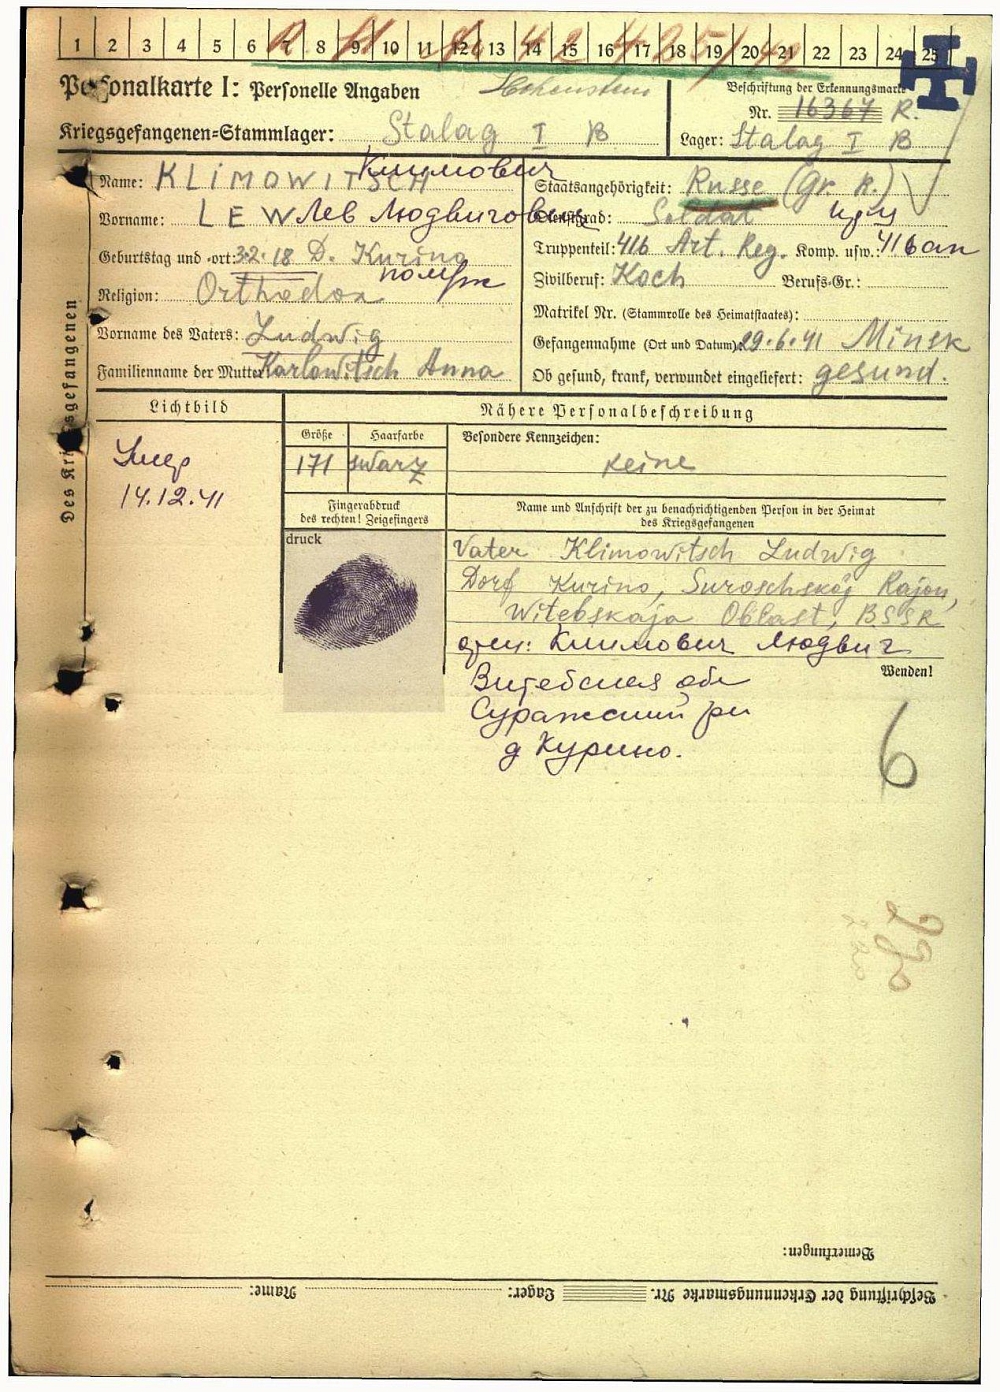 1 2 3 4 5 6 7 8 9 10 11 12 13 14 15 16 17 18 19 20 21 22 23 24 25
Personalkarte I: Personelle Angaben
Hohenstein
Beschriftung der Erkennungsmarke
Nr. 16367 R.
Kriegsgefangenen-Stammlager: Stalag I B
Lager: Stalag I B
Des Kriegsgefangenen
Name: KLIMOWITSCH Климович
Staatsangehörigkeit: Russe (Gr. R.)
Vorname: LEW Лев Людвигович
Dienstgrad: Soldat
Geburtstag und -ort: 3.2.18 D. Kurino
Truppenteil: 416 Art. Reg. Komp. usw.: 416 ап
Religion: Orthodox
Zivilberuf: Koch Berufs-Gr.:
Matrikel Nr. (Stammrolle des Heimatstaates):
Vorname des Vaters: Ludwig
Gefangennahme (Ort und Datum): 29.6.41 Minsk
Familienname der Mutter: Karlowitsch Anna
Ob gesund, krank, verwundet eingeliefert: gesund.
Lichtbild
Nähere Personalbeschreibung
Größe Haarfarbe Besondere Kennzeichen:
171 swarz keine
Умер
14.12.41
Fingerabdruck
des rechten! Zeigefingers
Name und Anschrift der zu benachrichtigenden Person in der Heimat
des Kriegsgefangenen
druck
Vater Klimowitsch Ludwig
Dorf Kurino, Suroschsköj Rajon,
Witebskaja Oblast, BSSR
отец: Климович Людвиг
Wenden!
Витебская обл
Суражский рн
д Курино.
6
Bemerkungen:
Beschriftung der Erkennungsmarke Nr. Lager: Name: